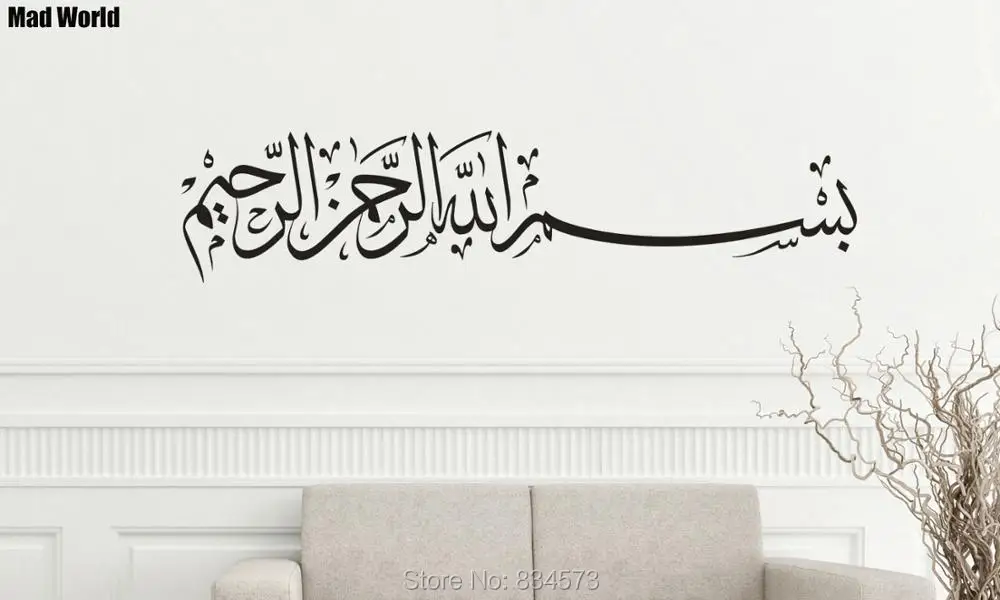 Mad World
بِسْمِ اللَّهِ الرَّحْمَٰنِ الرَّحِيمِ
Store No: 834573